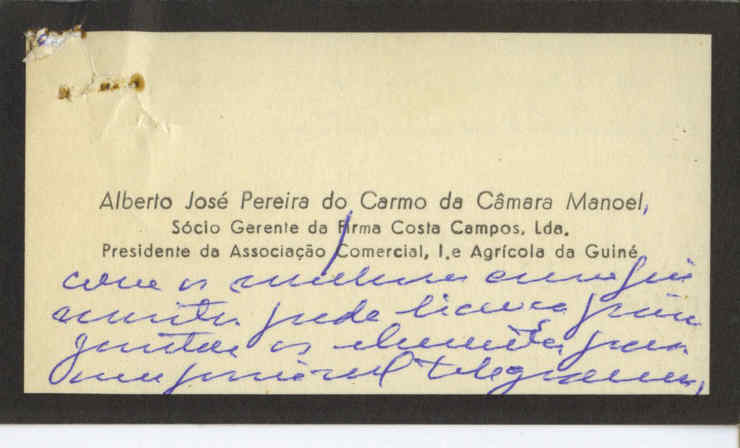 Alberto José Pereira do Carmo da Câmara Manoel,
Sócio Gerente da Firma Costa Campos, Lda.
Presidente da Associação Comercial, I.e Agrícola da Guiné
com os melhores cumpri
mentos pede licença para
juntar os elementos para
um possível telegrama,